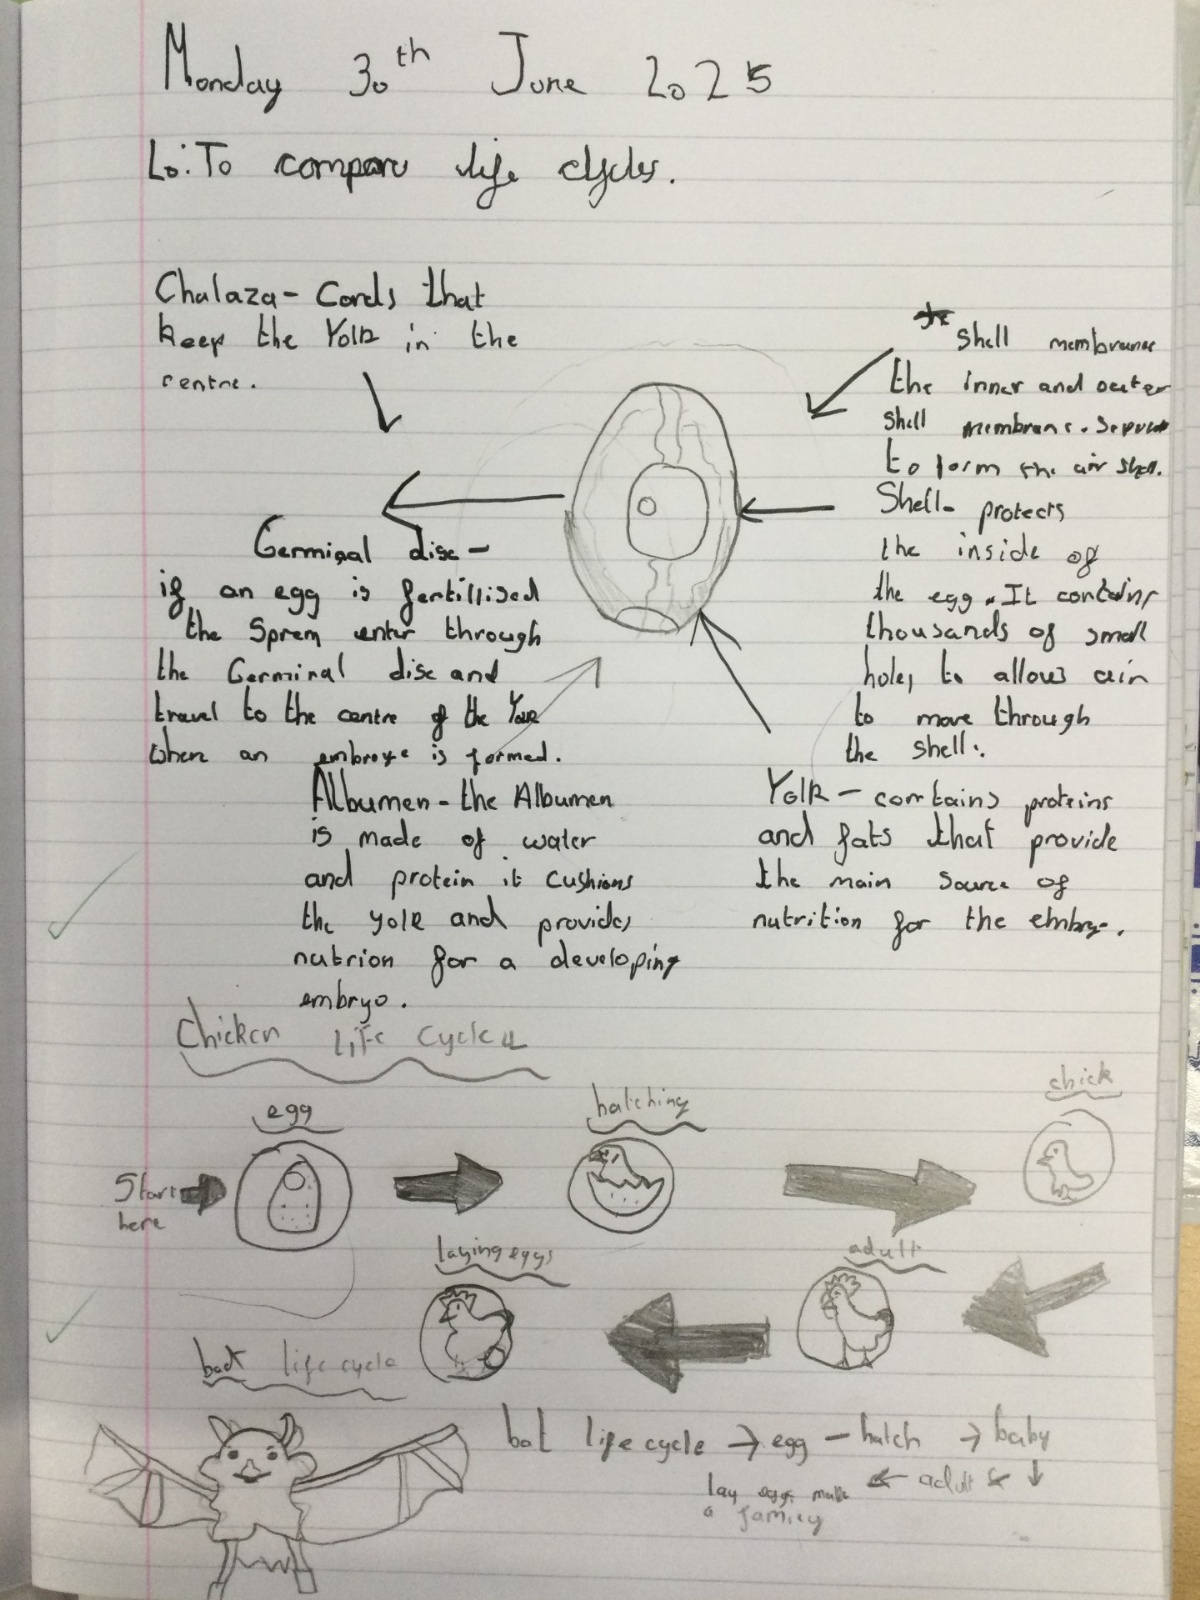 Monday 30th June 2025
Lo: To compare life cycles.
Chalaza- Cords that
keep the Yolk in the
centre.
Shell membranes
the inner and outer
shell membrane.
to form the air shell.
Shell- protects
the inside of
the egg. It contains
thousands of small
holes to allows air
to move through
the shell.
Germinal disc-
if an egg is fertillised
the Sprem enter through
the Germinal disc and
travel to the centre of the Yolk
when an embroye is formed.
Albumen- the Albumen
is made of water
and protein it cushions
the yolk and provides
nutrion for a developing
embryo.
Yolk- contains proteins
and fats that provide
the main source of
nutrition for the embryo.
Chicken Life Cycle
egg
hatching
chick
Start
here
laying eggs
adult
bat life cycle
bat life cycle → egg - hatch → baby
↓
← adult ←
lay eggs make
a family